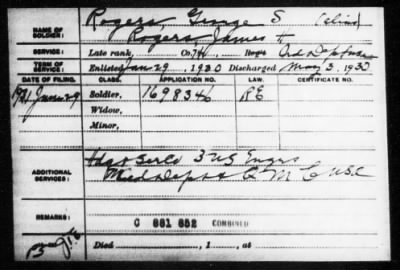 NAME OF SOLDIER: Rogers, George S (alias)
Rogers, James H
SERVICE: Late rank, Co. 74, Reg't Ord Dept
TERM OF SERVICE: Enlisted Jan 29, 1920 Discharged May 3, 1920
DATE OF FILING. CLASS. APPLICATION NO. LAW.
1921 June 29 Soldier, 1698346 RE
Widow,
Minor,
ADDITIONAL SERVICES: Hdqs Serv Co 3 US Engrs
Med Dept QMC USA
REMARKS: C 661 652 COMBINED
Died , 1 , at